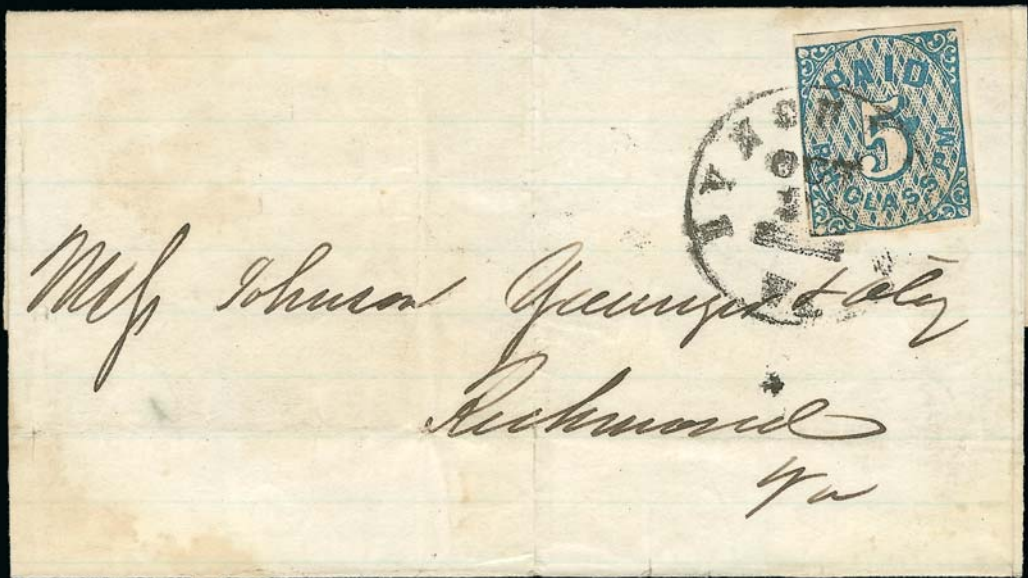 PAID
5
R.H. GLASS. P.M.
LYNCH
Mess Johnson Younger & Otey
Richmond
Va